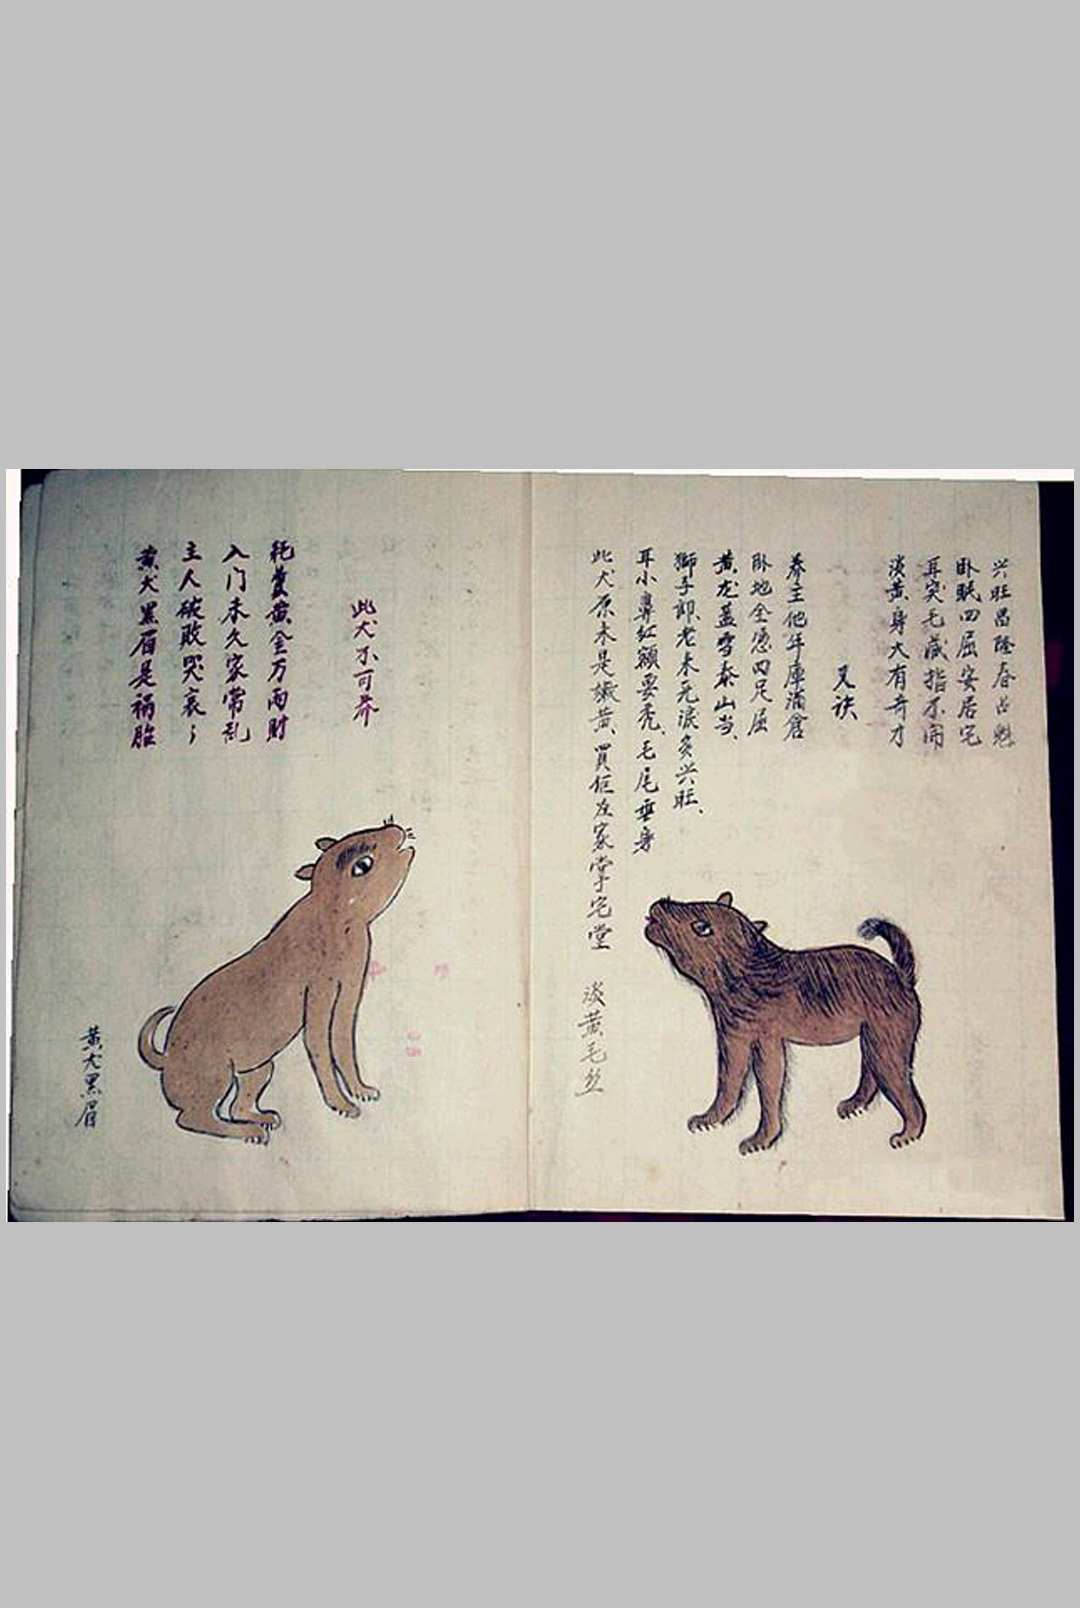 黄犬黑眉
黄犬黑眉是祸胎
主人破败哭哀々
入门未久家常乱
耗盡黄金万两財
此犬不可养
淡黄毛丝
此犬原来是嫩黄、買佢在家掌宅堂
耳小鼻红额要秃、毛尾垂身
獅子卸老未元淚多兴旺、
黄龙蓋雪泰山当、
卧地全憑四足屈
养主他年庫满倉
又诀
淡黄身大有奇才
耳突毛藏指不開
卧眠四屈安居宅
兴旺昌隆春占魁